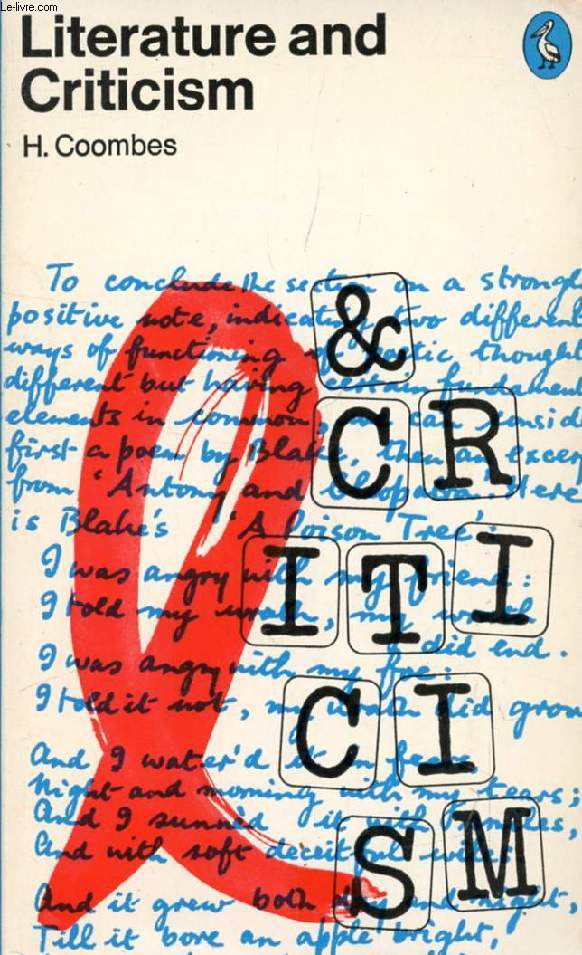 Le-livre.com
Literature and
Criticism
H. Coombes
To conclude the section on a strongl
positive note, indicating two different
ways of functioning of poetic thought
different but having certain fundamen
elements in common, we can consid
first a poem by Blake, then an excer
from 'Antony and Cleopatra'. Here
is Blake's 'A Poison Tree':
I was angry with my friend:
I told my wrath, my wrath
did end.
I was angry with my foe:
I told it not, my wrath did grow
And I water'd it in fears
Night and morning with my tears;
And I sunnèd it with smiles,
And with soft deceitful wiles
And it grew both day and night,
Till it bore an apple bright,
&
CR
ITI
CI
SM